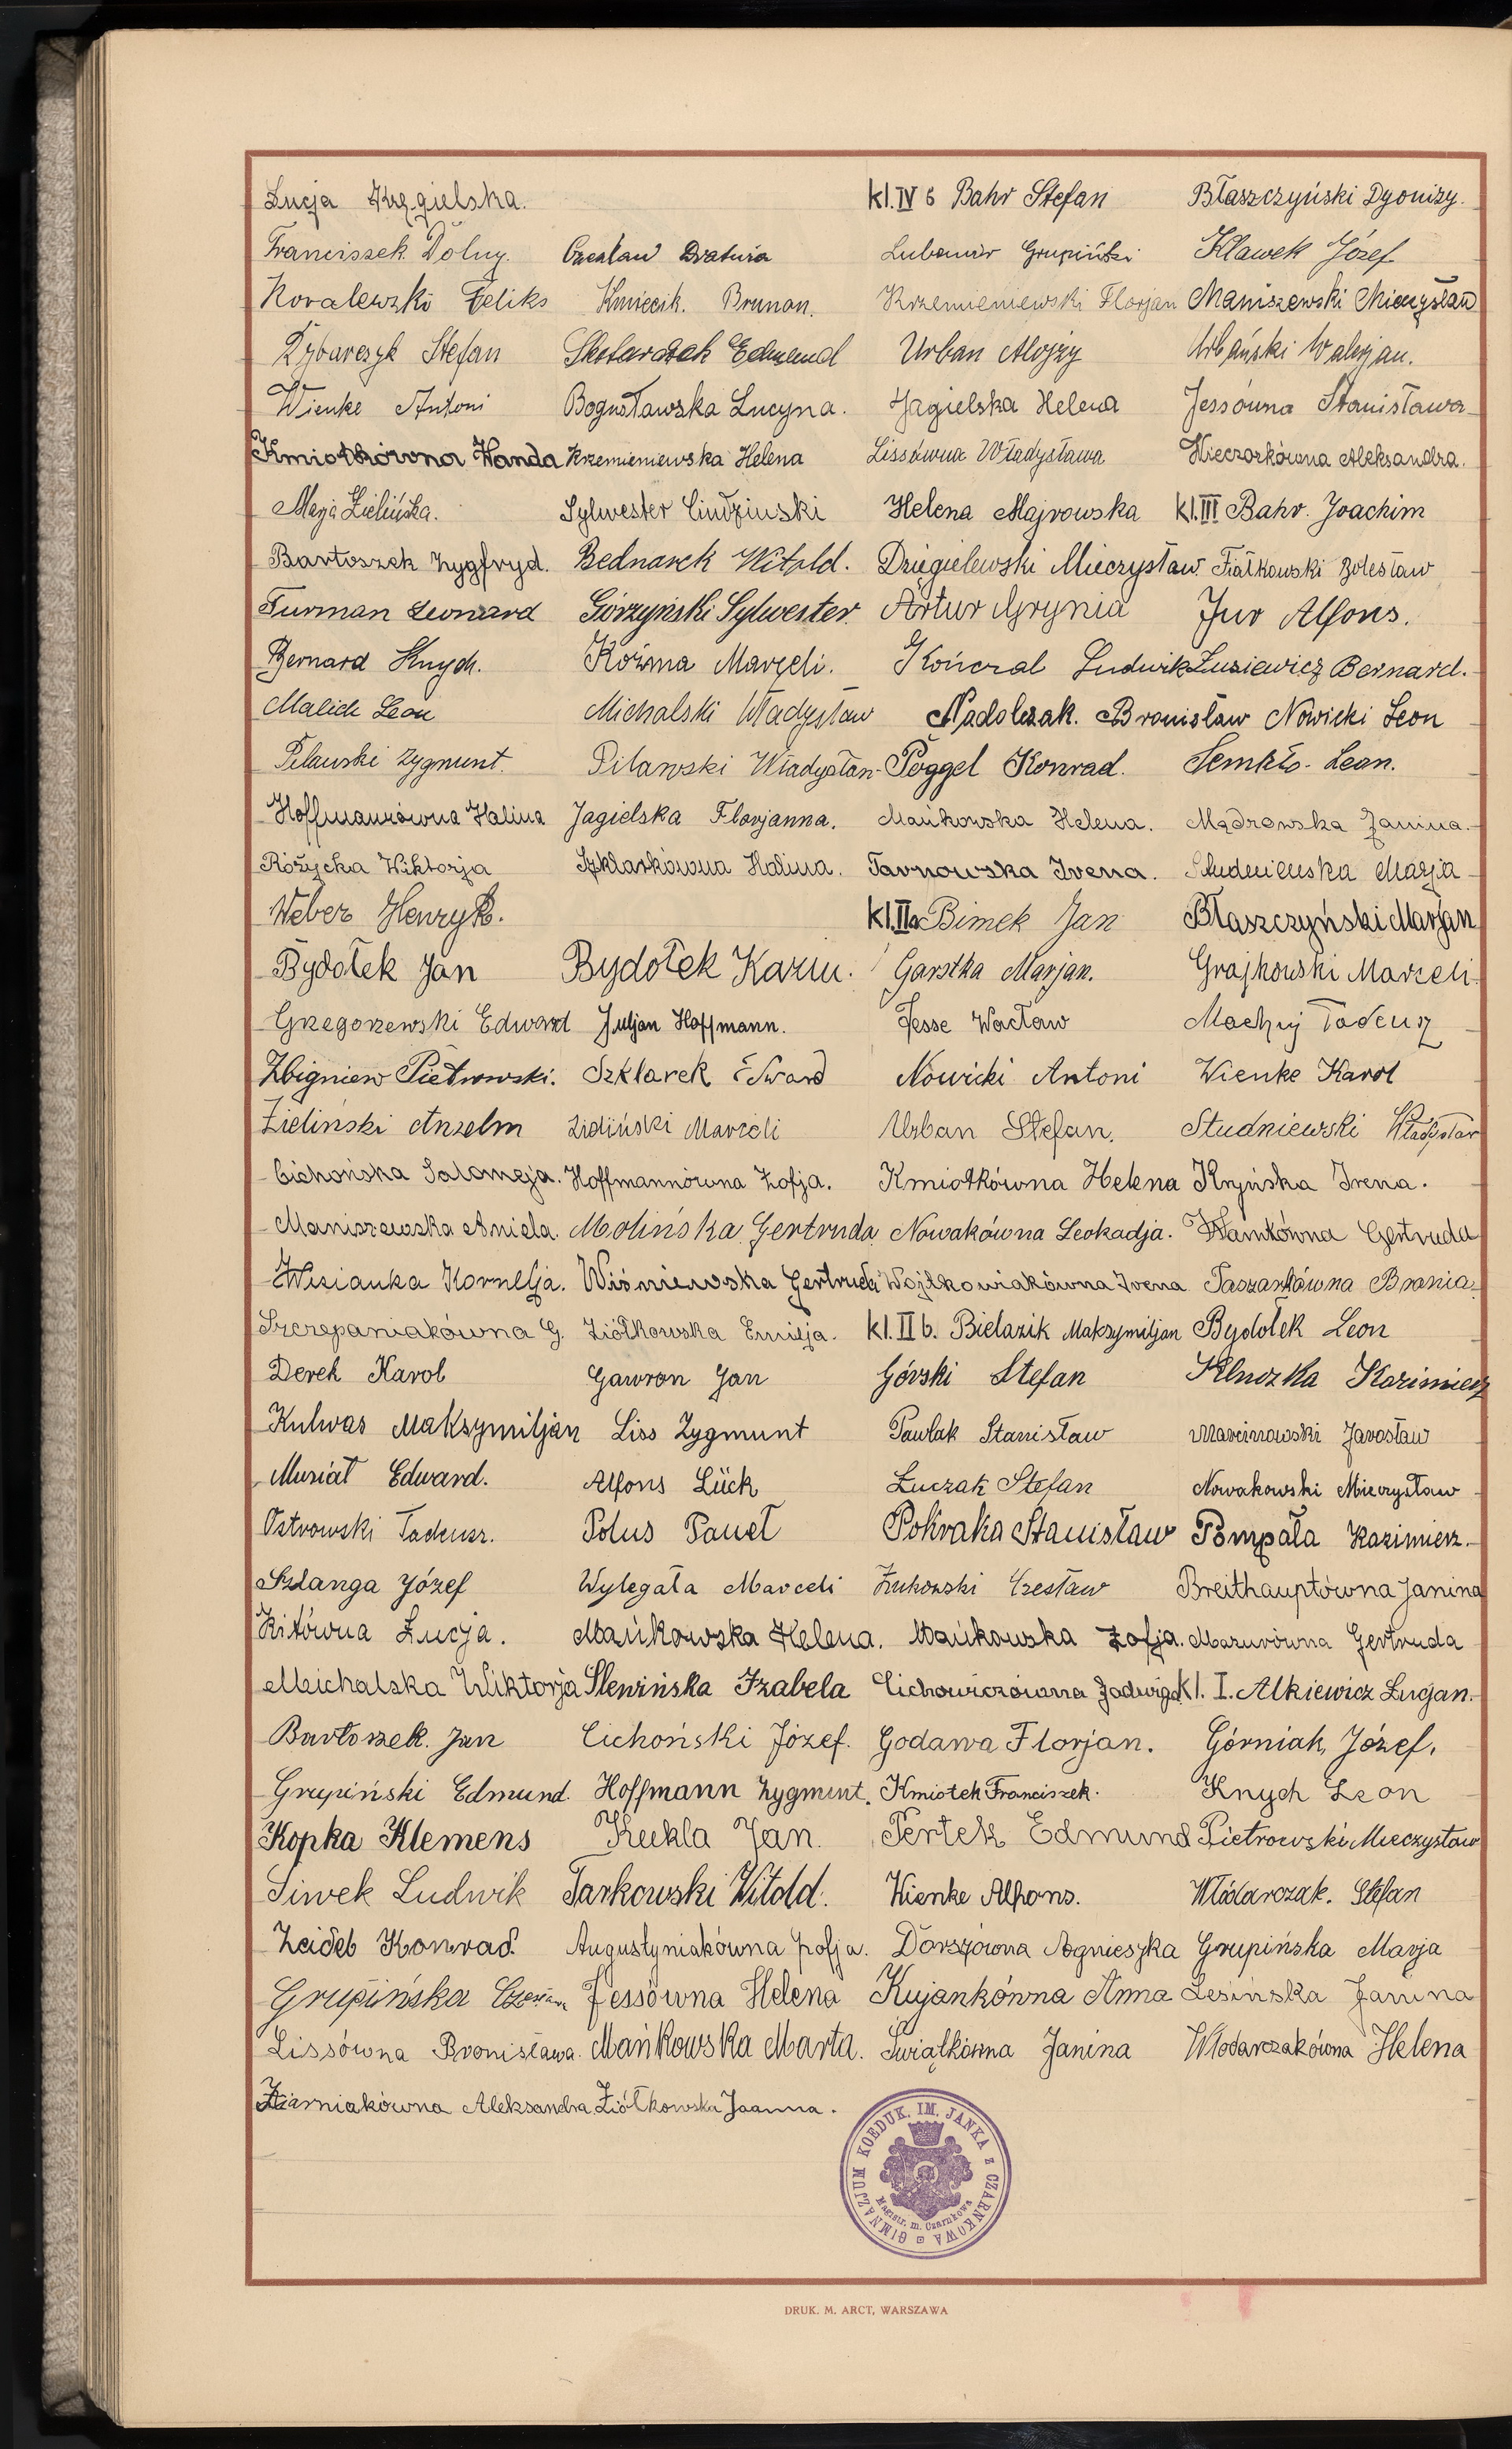 Łucja Kręgielska. kl. IV b Bahr Stefan Błaszczyński Dyonizy.
Franciszek Dolny. Czesław Dratwia Lubomir Grupiński Klawek Józef
Kovalewski Feliks Kmiecik. Brunon. Krzemieniewski Florjan Maniszewski Mieczysław
Rybarczyk Stefan Edmund Urban Alojzy Urbański Walerjan.
Wienke Antoni Bogusławska Lucyna. Jagielska Helena Jessówna Stanisława
Kmiotkówna Wanda Krzemieniewska Helena Lissówna Władysława Wieczorkówna Aleksandra.
Marja Zielińska. Sylwester Cindziuski Helena Majrowska kl. III Bahr. Joachim
Bartoszek Zygfryd. Bednarek Witold. Dzięgielewski Mieczysław. Fiałkowski Bolesław
Furman Leonard Górzyński Sylwester. Artur Grynia Jur Alfons.
Bernard Knych. Koźma Marceli. Kończal Ludwik Łusiewicz Bernard.
Malich Leon Michalski Władysław Nadolczak. Bronisław Nowicki Leon
Pilawski Zygmunt. Pilawski Władysław Poggel Konrad. Semkło. Leon.
Hoffmanówna Halina Jagielska Florjanna. Mańkowska Helena. Mądrowska Janina.
Różycka Wiktorja Szklarkówna Halina. Tarnowska Irena. Studniewska Marja
Weber Henryk. kl. IIa Bimek Jan Błaszczyński Marjan
Bydołek Jan Bydołek Kazim. Garstka Marjan. Grajkowski Marceli
Gregorzewski Edward Juljan Hoffmann. Jesse Wacław Machuj Tadeusz
Zbigniew Pietrowski. Szklarek Edward Nowicki Antoni Wienke Karol
Zieliński Anzelm Zieliński Marceli Urban Stefan. Studniewski Władysław
Cichońska Salomeja. Hoffmannówna Zofja. Kmiotkówna Helena Kryńska Irena.
Maniszewska Aniela. Molińska Gertruda Nowakówna Leokadja. Wamkówna Gertruda
Wisianka Kornelja. Wiśniewska Gertruda Wojtkowiakówna Irena Taszarkówna Bronia.
Szczepaniakówna G. Ziółkowska Emilja. kl. II b. Bielazik Maksymiljan Bydołek Leon
Derek Karol Gawron Jan Górski Stefan Kluszka Kazimierz
Kulwas Maksymiljan Liss Zygmunt Pawlak Stanisław Marcinowski Jarosław
Musiał Edward. Alfons Lück Łuczak Stefan Nowakowski Mieczysław
Ostrowski Tadeusz. Polus Paweł Pokraka Stanisław Pompała Kazimierz.
Szlanga Józef Wylegała Marceli Żukowski Czesław Breithauptówna Janina
Kitówna Łucja. Mańkowska Helena. Mańkowska Zofja. Mazurówna Gertruda
Michalska Wiktorja Slewińska Izabela Cichowiczówna Jadwiga kl. I. Alkiewicz Lucjan.
Bartoszek. Jan Cichoński Józef. Godawa Florjan. Górniak, Józef.
Grupiński Edmund. Hoffmann Zygmunt. Kmiotek Franciszek. Knych Leon
Kopka Klemens Kukla Jan. Pertek Edmund Pietrowski Mieczysław
Siwek Ludwik Tarkowski Witold. Wienke Alfons. Włodarczak. Stefan
Zeideb Konrad. Augustyniakówna Zofja. Dorszówna Agnieszka Grupińska Marja
Grupińska Jessówna Helena Kujankówna Anna Lesińska Janina
Lissówna Bronisława. Mańkowska Marta. Świątkówna Janina Włodarczakówna Helena
Ziarniakówna Aleksandra. Ziółkowska Joanna.
GIMNAZJUM KOEDUK. IM. JANKA z CZARNKOWA
Magistr. m. Czarnkowa
DRUK. M. ARCT, WARSZAWA